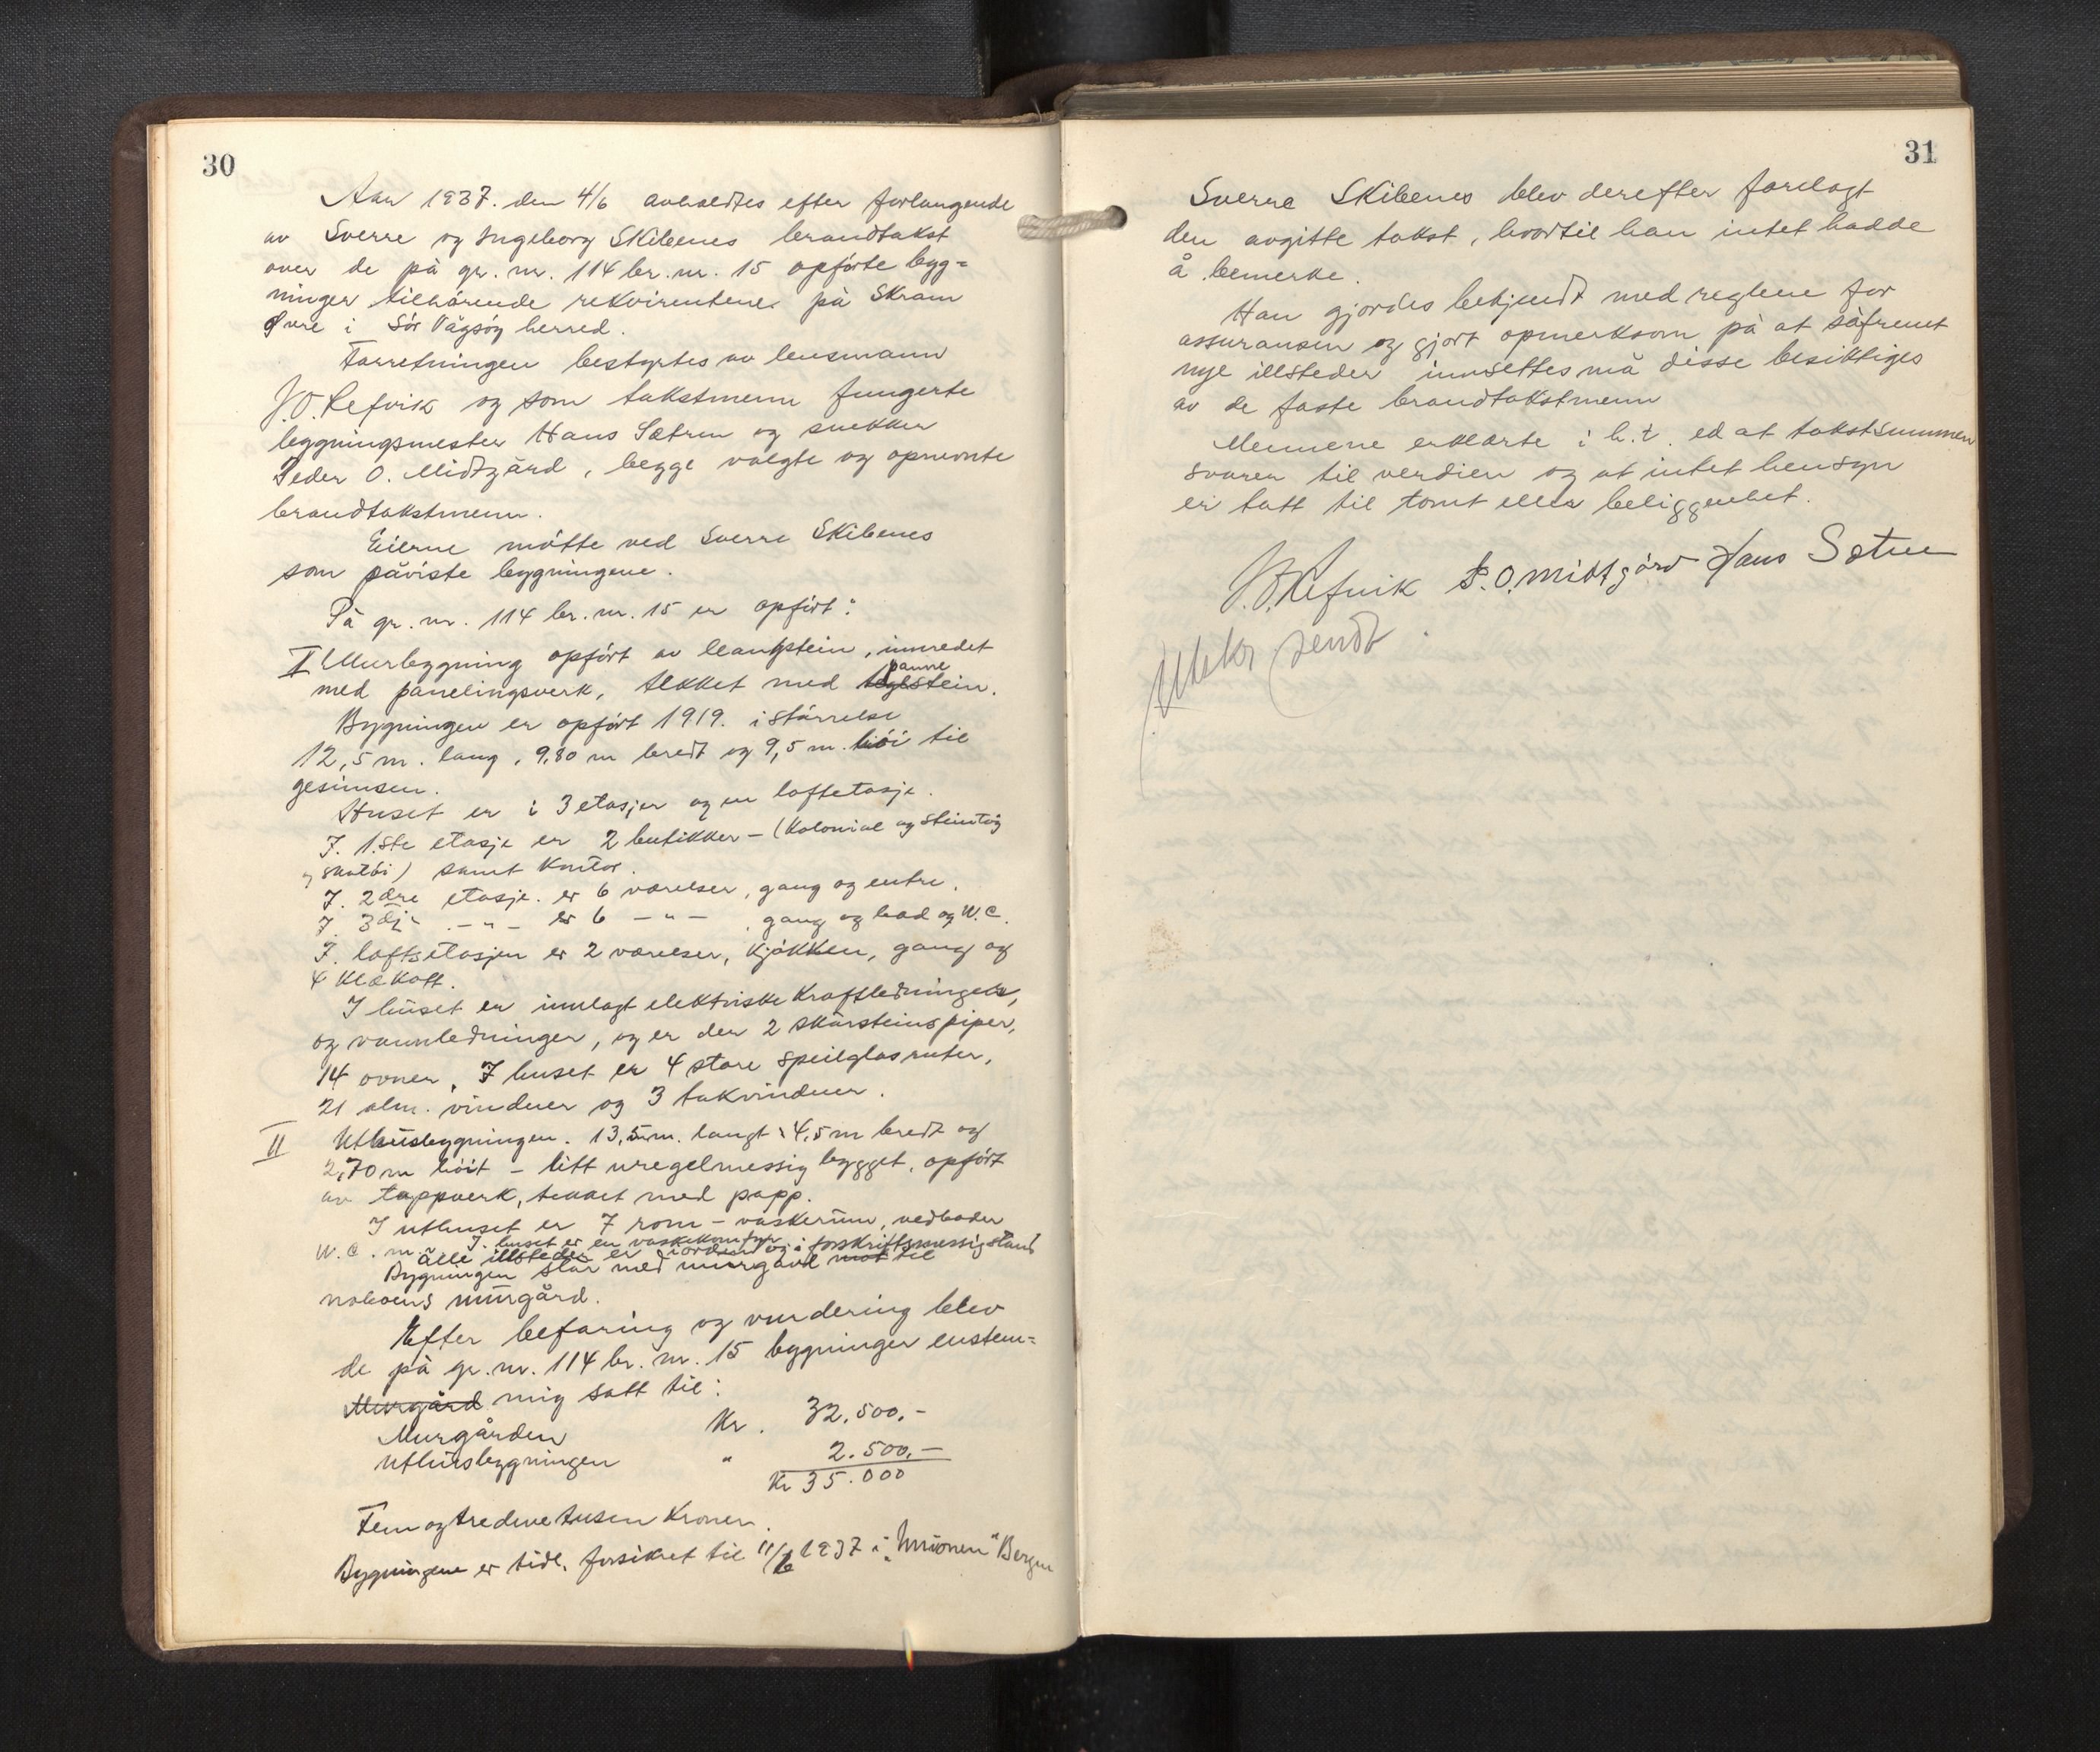 30
Aar 1937. den 4/6 avholdtes efter forlangende
av Sverre og Ingeborg Skibenes brandtakst
over de på gr. nr. 114 br. nr. 15 opförte byg=
ninger tilhörende rekvirentene på Skram
Övre i Sör Vågsöy herred.
Forretningen bestyrtes av lensmann
J.O. Refvik og som takstmenn fungerte
byggningsmester Hans Sætren og snekker
Peder O. Midtgård, begge valgte og opnevnte
brandtakstmenn.
Eierne mötte ved Sverre Skibenes
som påviste bygningene.
På gr. nr. 114 br. nr. 15 er opfört:
I Murbygning opfört av , innredet
panne
med panelingsverk, tekket med teglstein.
Bygningen er opfört 1919. i störrelse
12,5 m. lang, 9,80 m bredt og 9,5 m. höi til
gesimsen.
Huset er i 3 etasjer og en loftetasje.
I. 1.ste etasje er 2 butikker – (Kolonial og Steintöi
og skotöi) samt kontor.
I. 2dre etasje. er 6 værelser, gang og entre.
I. 3dje – " – er 6 – " – , gang og bad og W.C.
I. loftsetasjen er 2 værelser, kjökken, gang og
4 klækott.
I huset er innlagt elektriske kraftledninger,
og vannledninger, og er der 2 skorsteinspiper,
14 ovner, I huset er 4 store speilglasruter,
21 alm. vinduer og 3 takvinduer.
II Uthusbygningen. 13,5 m. langt 4,5 m bredt og
2,70 m höit – litt uregelmessig bygget, opfört
av tappverk, tekket med papp.
I uthuset er 7 rom – vaskerum, vedboder
W.C. m.v. I. huset er en vaskekomfyr
Alle illsteder er i orden og i forskriftsmessig stand
Bygningen står med murgavl mot til
naboens murgård.
Efter befaring og vurdering blev
de på gr. nr. 114 br. nr. 15 bygninger enstem=
Murgård mig satt til:
Murgården Kr. 32.500.-
Uthusbygningen " 2.500.-
Kr 35.000
Fem og tredeve tusen kroner.
Bygningene er tidl. forsikret til 11/6 1937 i "Unionen" Bergen
31
Sverre Skibenes blev derefter forelagt
den avgitte takst, hvortil han intet hadde
å bemerke.
Han gjordes bekjendt med reglene for
assuransen og gjort opmerksom på at såfremt
nye illsteder innsettes må disse besiktiges
av de faste brandtakstmenn
Mennene erklærte i h. t. ed at takstsummen
svarer til verdien og at intet hensyn
er tatt til tomt eller beliggenhet.
J.O. Refvik P.O. Midtgård Hans Sætren
Utskr sendt